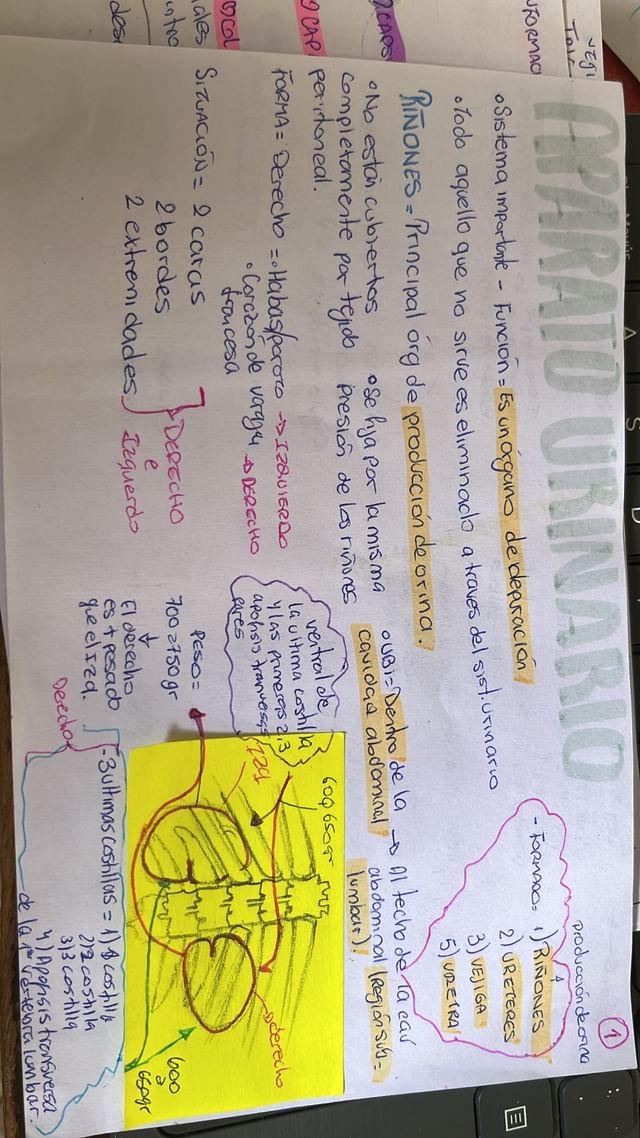 APARATO URINARIO
1
• Sistema importante - Función = Es un órgano de depuración
• Todo aquello que no sirve es eliminado a traves del sist. urinario
producción de orina
- FORMADO = 1) RIÑONES
2) URETERES
3) VEJIGA
5) URETRA
RIÑONES = Principal órg de producción de orina.
• No están cubiertos
completamente por tejido
peritoneal.
• Se fija por la misma
presión de los riñones
• UBI = Dentro de la
cavidad abdominal
→ Al techo de la cav
abdominal (región sub=
lumbar).
FORMA = Derecho = • Habas/poroto → IZQUIERDO
• Corazón de
francesa → DERECHO
SITUACIÓN = 2 caras
2 bordes
2 extremidades
DERECHO
e
Izquierdo
ventral de
la ultima costilla
y las primeras 2,3
apofisis tranversas
PESO =
700 a 750 gr
El derecho
es + pesado
que el Izq.
IZQ
650 gr
Derecho
600
a
650 gr
Derecho
- 3 ultimas costillas = 1) costilla
2) 2 costilla
3) 3 costilla
4) Apofisis transversa
de la 1ª vertebra lumbar.
FORMADO